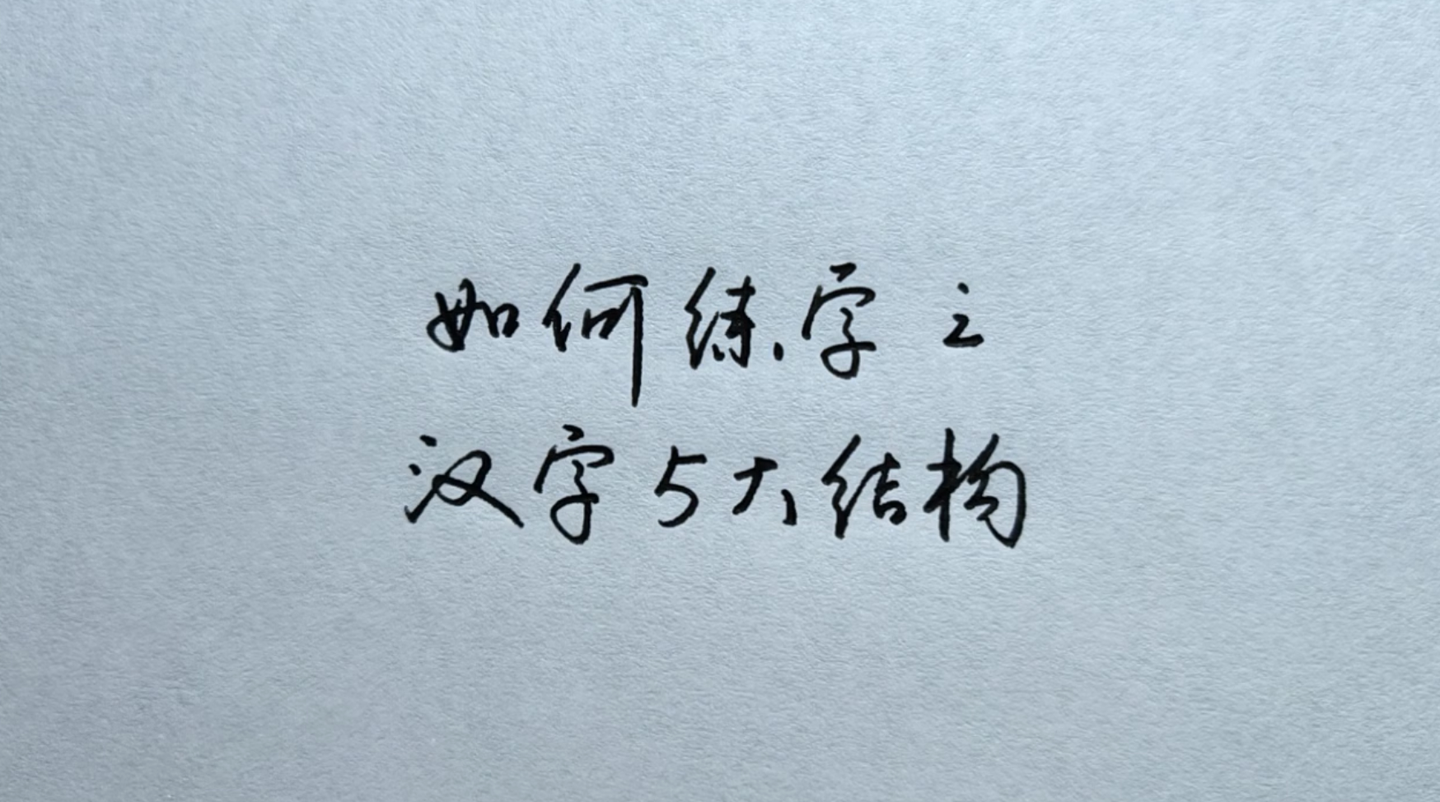 如何练字之
汉字5大结构